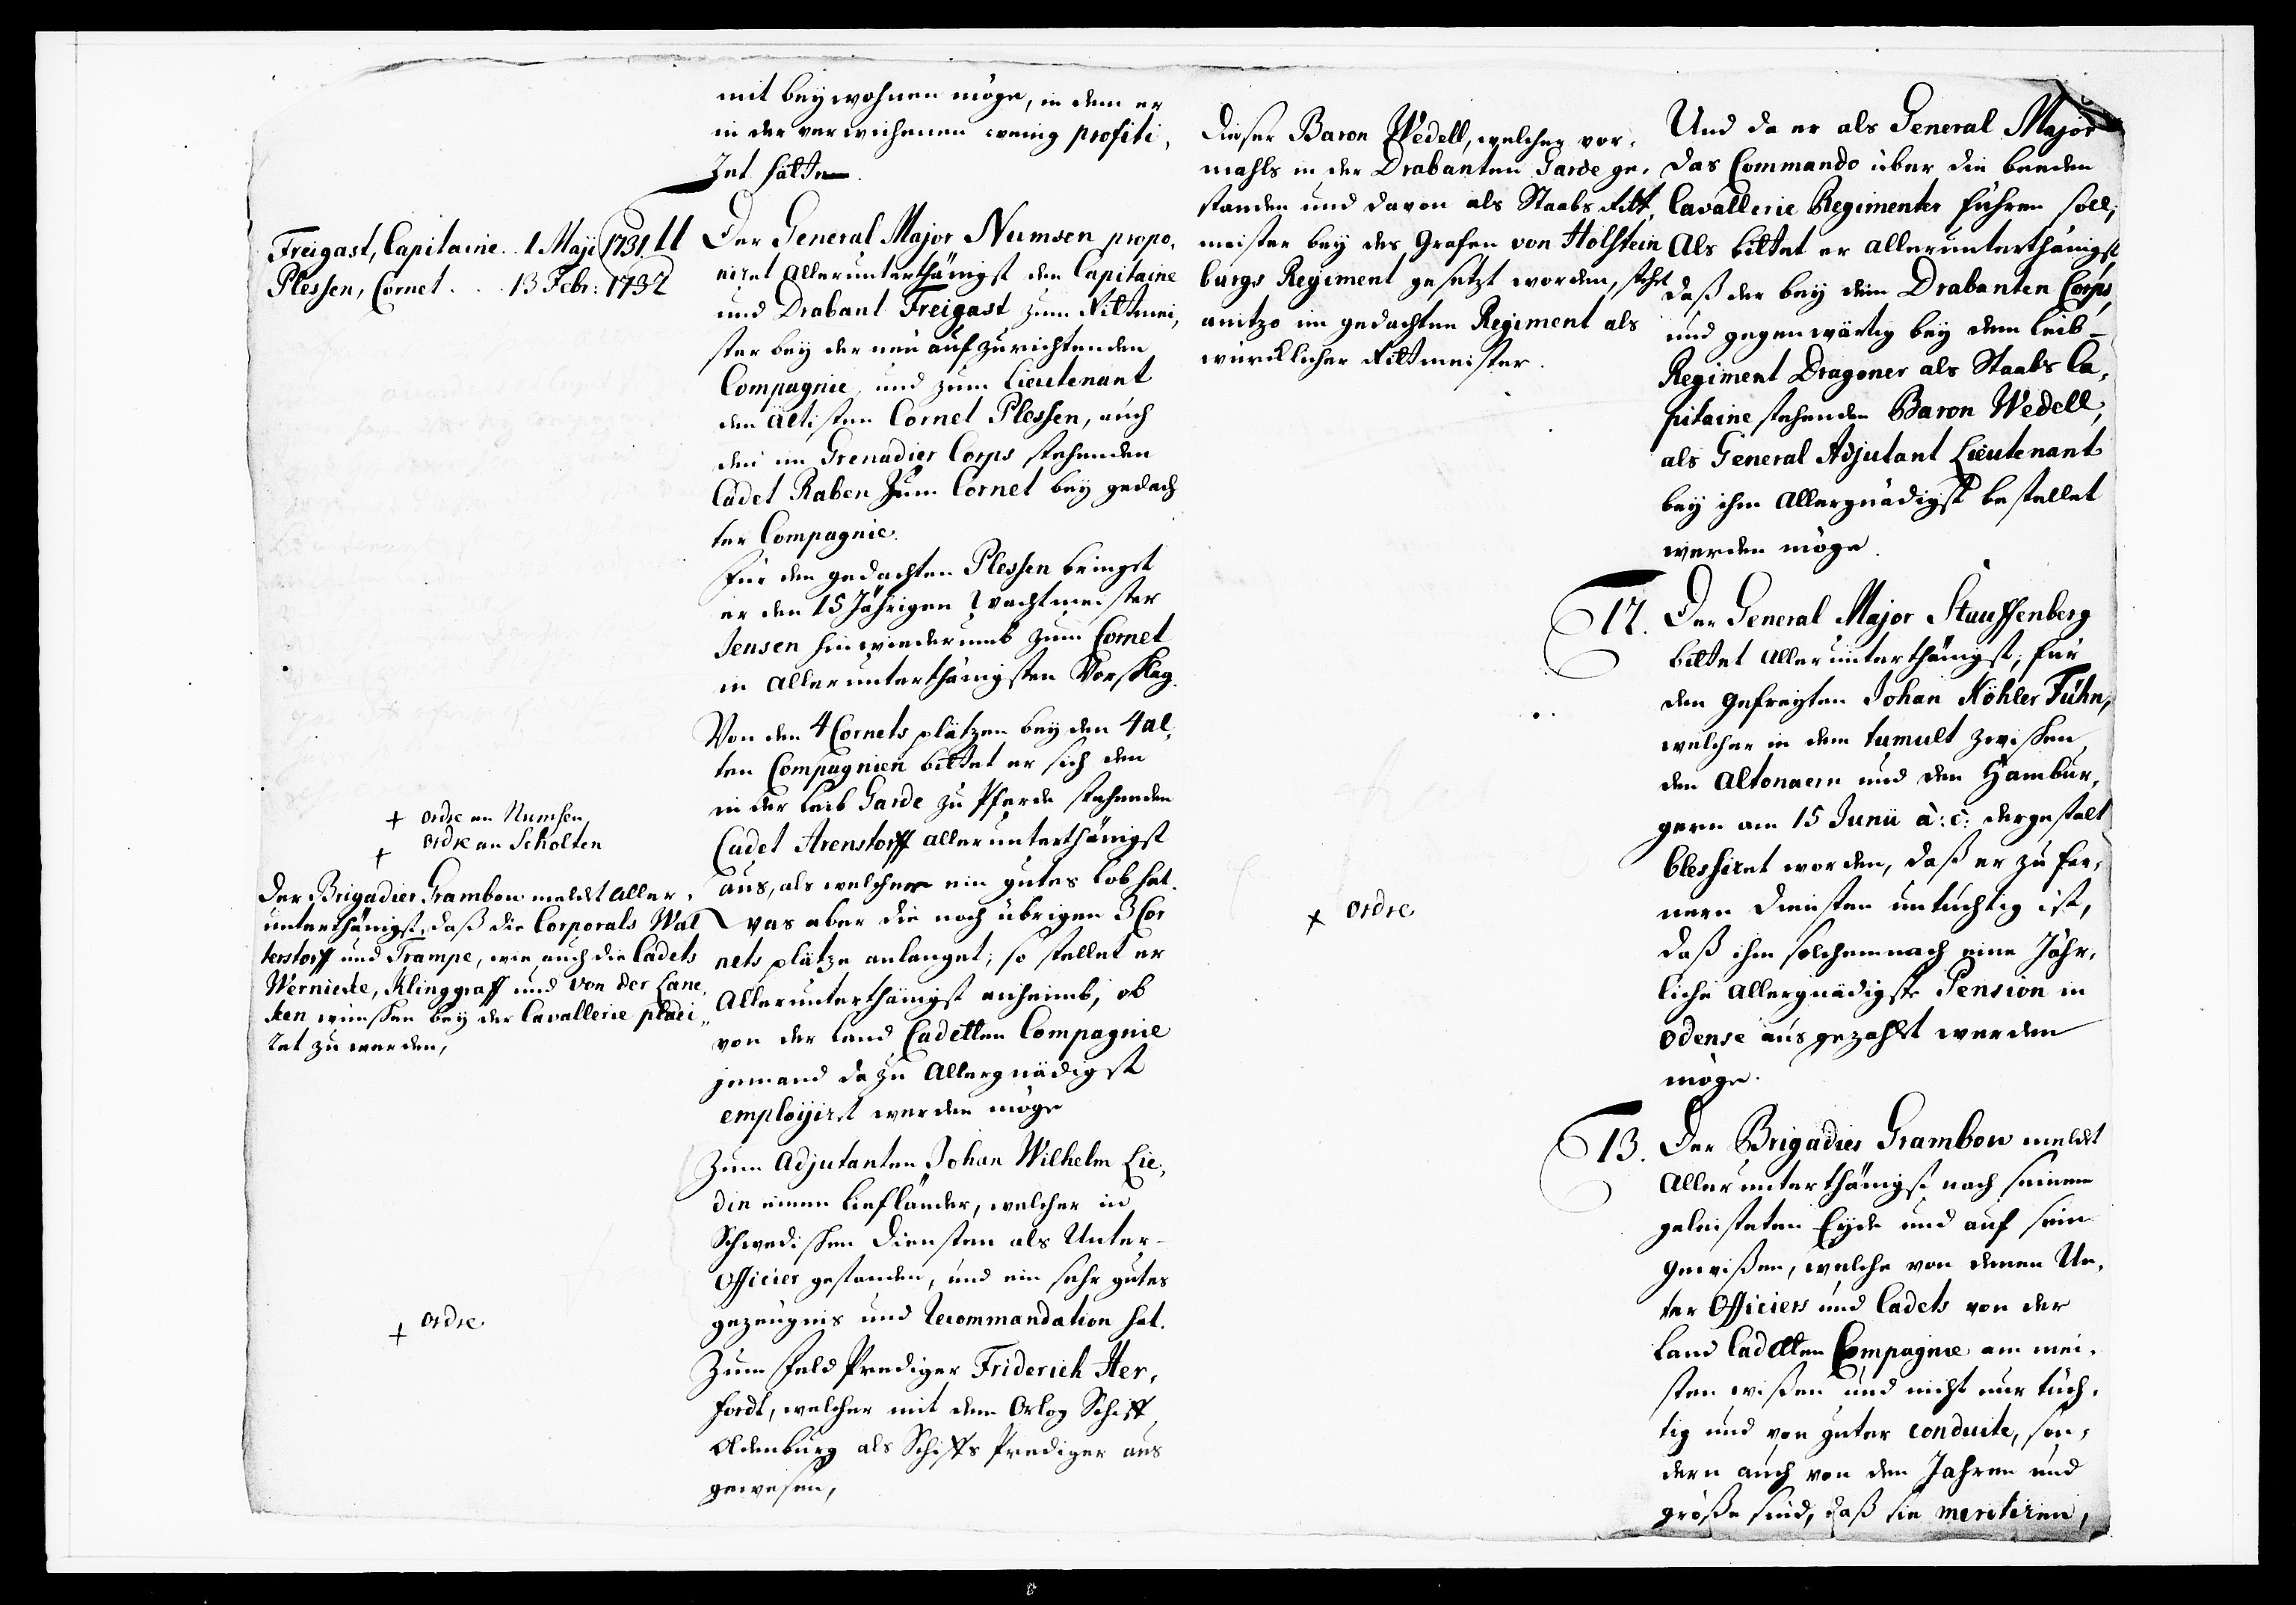 mit beÿwohnen möge, in dem er
in der verwichenen wenig profiti,
ret hätte.
Freigast, Capitaine. . 1 Maji 1731
Plessen, Cornet . . . 13 Febr: 1732
11 Der General Major Numsen propo,
niret allerunterthänigst den Capitaine
und Drabant Freigast zum Rittmei,
ster beÿ der neu aufzurichtenden
Compagnie, und zum Lieutenant
den ältisten Cornet Plessen, auch
den im Grenadier Corps stehenden
Cadet Raben zum Cornet beÿ gedach
ter Compagnie.
Für den gedachten Plessen bringet
er den 15 Jährigen Wachtmeister
Jensen hinwiederumb zum Cornet
in allerunterthänigsten Vorschlag.
Von den 4 Cornets plätzen beÿ den 4 al,
ten Compagnien bittet er sich den
in der Leib Garde zu Pferde stehenden
Cadet Arenstorff allerunterthänigst
aus, als welcher ein gutes Lob hat.
Was aber die noch übrigen 3 Cor
nets plätze anlanget, so stellet er
Allerunterthänigst anheimb, ob
von der Land Cadetten Compagnie
jemand dazu Allergnädigst
employiret werden möge
Zum Adjutanten Johan Wilhelm Lie,
din einen Liefländer, welcher in
Schwedischen Diensten als Unter-
Officier gestanden, und ein sehr gutes
gezeugnis und Recommandation hat.
Zum Feld Prediger Friderich Her,
fordt, welcher mit dem Orlog Schiff
Oldenburg als Schiffs Prediger aus
gewesen,
+ ordre an Numsen,
+ ordre an Scholten
Der Brigadier Grambow meldt aller,
unterthänigst, daß die Corporals Wal
terstorff und Trampe, wie auch die Cadets
Wernicke, Klinggraff und von der Lanc,
ken wünschen beÿ der Cavallerie placi
ret zu werden,
+ ordre
Dieser Baron Wedell, welcher vor,
mahls in der Drabanten Garde ge,
standen und davon als Staabs Ritt,
meister beÿ des Grafen von Holstein
burgs Regiment gesetzt worden, steht
anitzo im gedachten Regiment als
würcklicher Rittmeister.
+ ordre
Und da er als General Major
das Commando über die beeden
Cavallerie Regimenter führen soll,
Als bittet er allerunterthänigst
daß der beÿ dem Drabanten Corps,
und gegenwärtig beÿ dem Leib-
Regiment Dragoner als Staabs Ca,
pitaine stehenden Baron Wedell,
als General Adjutant Lieutenant
beÿ ihm Allergnädigst bestellet
werden möge.
12. Der General Major Stauffenberg
bittet Allerunterthänigst, für
den Gefreyten Johan Köhler Fühn,
welcher in dem tumult zwischen
den Altonaern und den Hambur,
gern am 15 Junii a: c: dergestalt
blessiret worden, daß er zu fer,
nern Diensten untüchtig ist,
daß ihm solchemnach eine Jähr,
liche Allergnädigste Pension in
Odense ausgezahlt werden
möge.
13. Der Brigadier Grambow meldt
Allerunterthänigst nach seinem
geleisteten Eÿde und auf sein
Gewißen, welche von denen Un,
ter Officiers und Cadets von der
Land Cadetten Compagnie am mei,
sten wißen und nicht nur tüch,
tig und von guter conduite, son,
dern auch von den Jahren und
größe sind, daß sie meritiren,